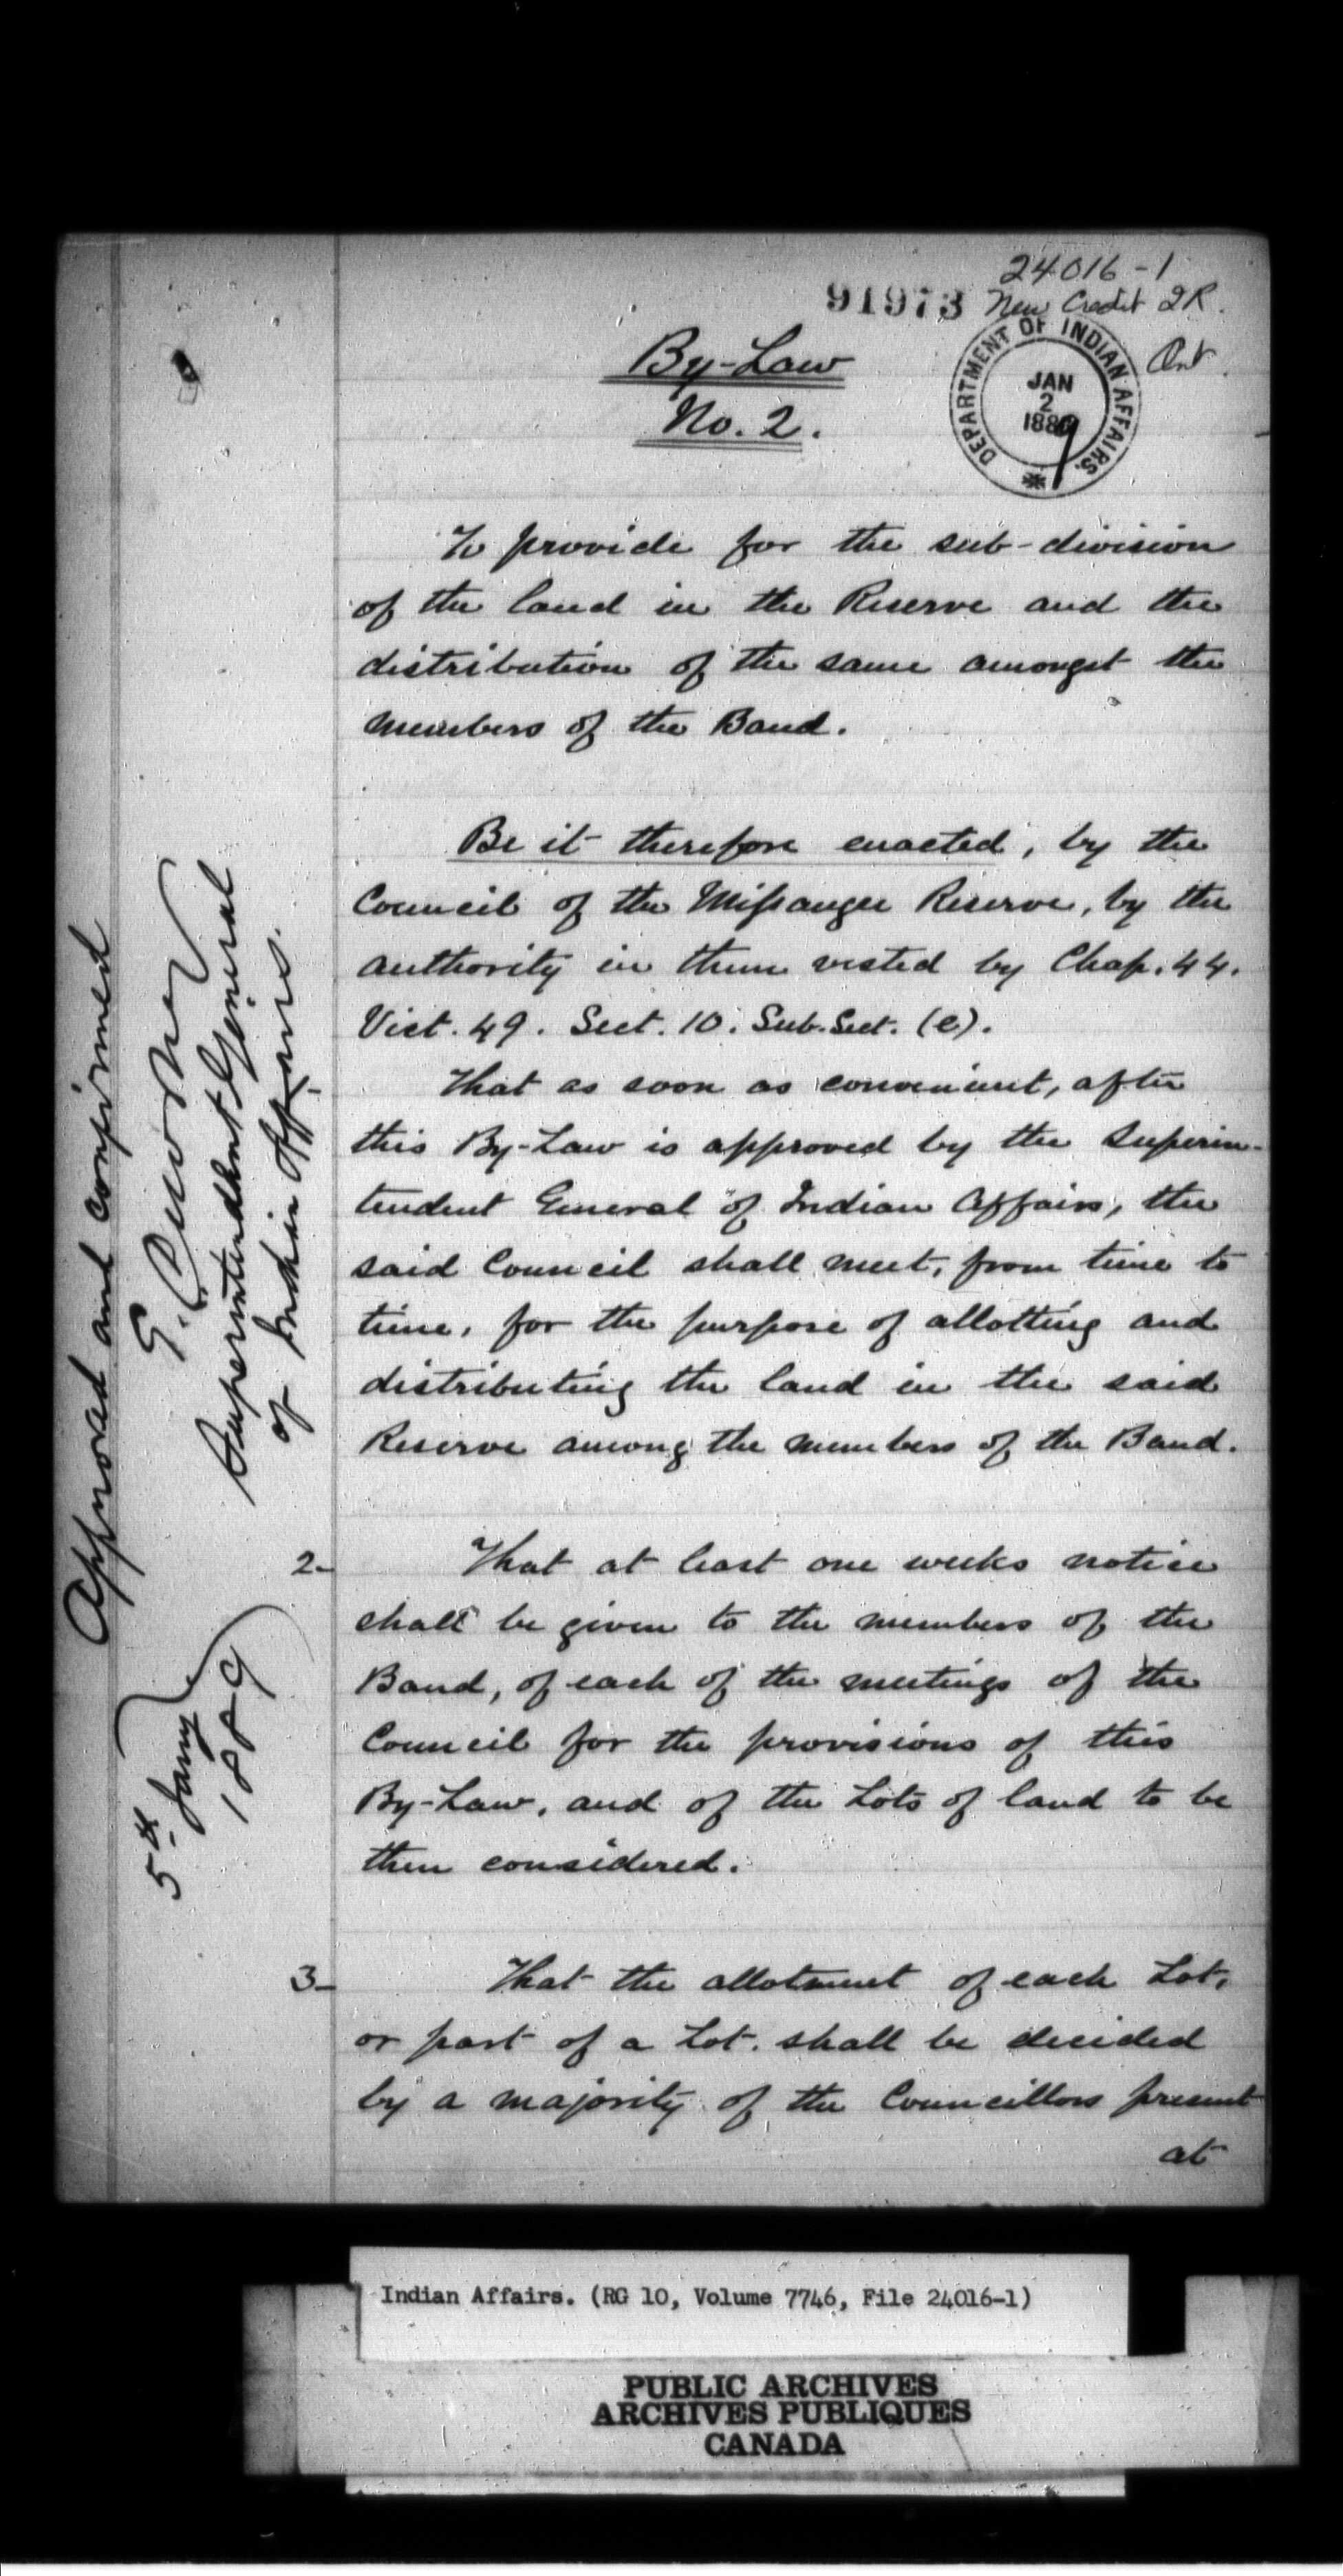 24016-1
91973 New Credit IR.
Ont.
DEPARTMENT OF INDIAN AFFAIRS.
JAN
2
1889
By-Law
No. 2.
To provide for the sub-division
of the land in the Reserve and the
distribution of the same amongst the
members of the Band.
Be it therefore enacted, by the
Council of the Missaugee Reserve, by the
authority in them vested by Chap. 44.
Vict. 49. Sect. 10. Sub. Sect. (e).
That as soon as convenient, after
this By-Law is approved by the Superin-
tendent General of Indian Affairs, the
said Council shall meet, from time to
time, for the purpose of allotting and
distributing the land in the said
Reserve among the members of the Band.
2- That at least one weeks notice
shall be given to the members of the
Band, of each of the meetings of the
Council for the provisions of this
By-Law, and of the Lots of land to be
then considered.
3- That the allotment of each Lot,
or part of a Lot. shall be decided
by a majority of the Councillors present
at
Approved and confirmed
E. Dewdney
Superintendent General
of Indian Affairs.
5th Jany
1889
Indian Affairs. (RG 10, Volume 7746, File 24016-1)
PUBLIC ARCHIVES
ARCHIVES PUBLIQUES
CANADA